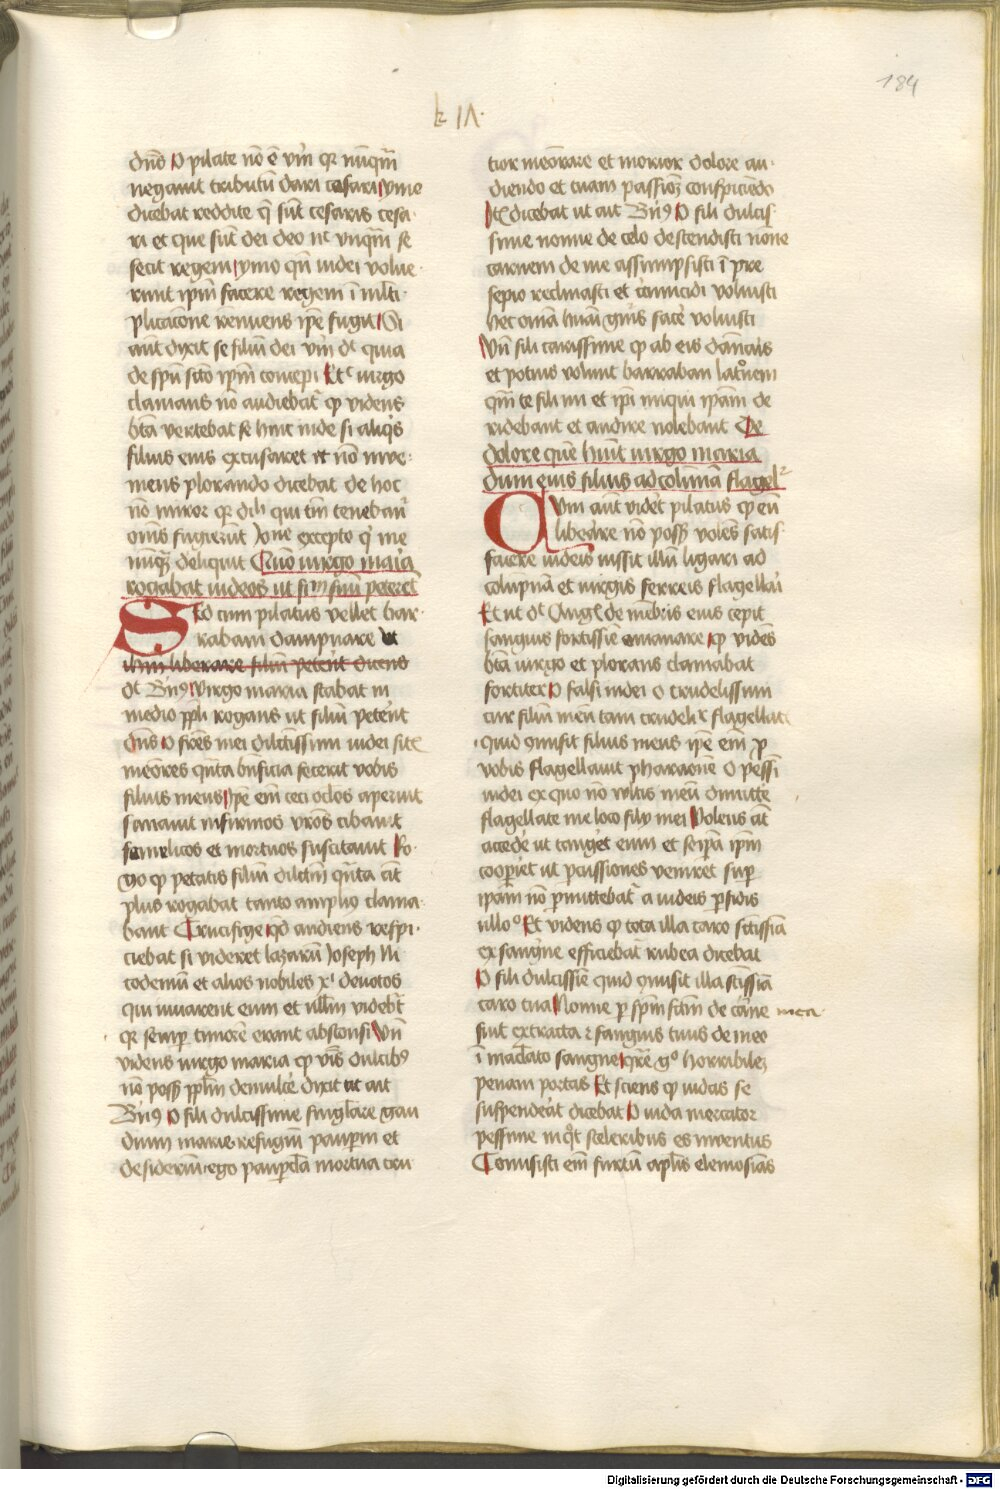 184
dn̄o O pilate nō ē vm̄ qr nūqm̄
negauit tributū dari cesari ymo
dicebat reddite q̄ sūt cesaris cesa
ri et que sūt dei deo nt vnqm̄ se
fecit regem ymo qn̄ iudei volue
runt ipm̄ facere regem ī ml̄ti
plicacōne renuens ip̄e fugit Si
aūt dixit se filiū dei vm̄ dt quia
de spū scō ipm̄ concepi Etc̄ uirgo
clamans nō audiebat qp videns
bt̄a vertebat se hinc inde si aliqs
filiū eius excusaret et nō inue
niens plorando dicebat de hoc
nō miror qr dih̄ qui tm̄ tenebant
om̄s fugierūt Jone excepto q̄ me
nūqz deliquit Quō uirgo maria
rogabat iudeos ut sm̄ filiū peterēt
SEd cum pilatus vellet bar
rabam dampnare ut
ihm̄ liberare filiū peterēt dicens
dt Bn̄9 virgo maria stabat in
medio pp̄li rogans ut filiū peterēt
dn̄s O frēs mei dilc̄tissimi iudei sitc̄
meōres qn̄ta bn̄ficia fecerit vobis
filius meus Ip̄e em̄ ceci oclos aperuit
sanauit infirmos vr̄os cibauit
famelicos et mortuos suscitauit Ro
go qp petatis filiū dilc̄m̄ qn̄ta āt
plus rogabat tanto ampliꝰ clama
bant Crucifige qd̄ audiens respi
ciebat si videret lazarū Joseph Ni
codemū et alios nobiles xi deuotos
qui iuuarent eum et nll̄m videbt̄
qr semp̄ timore erant absconsi Vn̄
videns uirgo maria qp vīs dulcibꝰ
nō poss̄ pp̄lm̄ demulcē dixit ut ait
Bn̄9 O fili dulcissime singl̄are gau
dium marie refugiū paupm̄ et
desideriū ego paup̄cl̄a mortua cru
tior meōrare et morior dolore au
diendo et tuam passioz̄ conspiciēdo
Itē dicebat ut ait Bn̄9 O fili dulcis
sime nonne de celo descendisti nōne
carnem de me assumpsisti ī pre
sepio reclinasti et circūcidi voluisti
hec om̄ia hūani gn̄is facē voluisti
Vn̄ fili carissime qp ab eis dam̄aīs
et potius volunt barraban latronem
qm̄ te fili mi et ip̄i iniqui ipām de
ridebant et audire nolebant De
dolore quē hūit uirgo maria
dum eius filius ad colūnā flagel
QVm aūt videt pilatus qp eū
liberare nō poss̄ volēs satis
facere iudeis iussit illū ligari ad
colūpnā et uirgis ferreis flagellari
Et ut dt Augꝰ de mēbris eius cepit
sanguis fortissīe emanare qp vidēs
bt̄a uirgo et plorans clamabat
fortiter O falsi iudei o crudelissimi
cur filiū meū tam crudelit̄ flagellatē
quid ꝯmisit filius meus ip̄e em̄ p̄
vobis flagellauit pharaonē O pessī
iudei ex quo nō vltis meū dimitte
flagellate me loco filij mei Volens āt
accedē ut tanget eum et seip̄a ipm̄
coopiret ut pcussiones venirēt sup
ipām nō pmittebat a iudeis pfidis
illo° Et videns qp tota illa caro sctīssīa
ex sangne efficiebat rubea dicebat
O fili dulcissīe quid ꝯmisit illa scīssīa
caro tua Nonne p spm̄ sctm̄ de carne mea
fuit extracta ꝛ sanguis tuus de meo
ī mac̄lato sangne qrē g° horribilez̄
penam portas Et sciens qp iudas se
suspendeāt dicebat O iuda mercator
pessime inqt sceleribus es inuentus
Comisisti em̄ furtū aplīs elemosīas
Digitalisierung gefördert durch die Deutsche Forschungsgemeinschaft - DFG